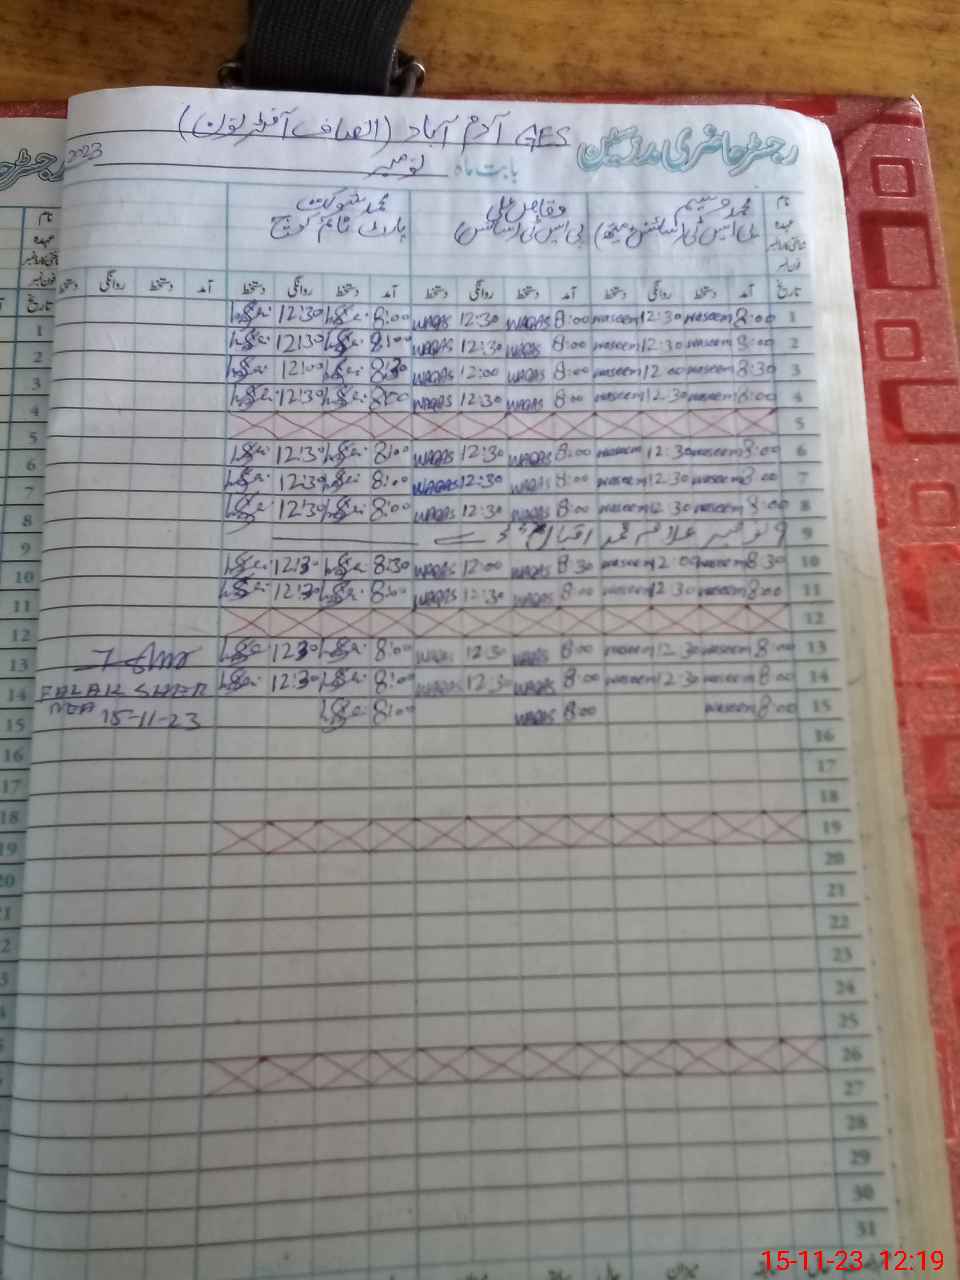 رجسٹر حاضری مدرسین GES آدم آباد (انصاف آفٹر نون)
بابت ماہ نومبر 2023
نام محمد وسیم وقاص علی محمد شوکت
عہدہ پی ایس ٹی (سائنس میتھ) پی ایس ٹی (سائنس) پارٹ ٹائم کوچ
شناختی کارڈ نمبر
فون نمبر
تاریخ آمد دستخط روانگی دستخط آمد دستخط روانگی دستخط آمد دستخط روانگی دستخط آمد دستخط روانگی دستخط
1 8:00 waseem 12:30 waseem 8:00 WAQAS 12:30 WAQAS 8:00 12:30
2 8:00 waseem 12:30 waseem 8:00 WAQAS 12:30 WAQAS 8:00 12:30
3 8:30 waseem 12:00 waseem 8:00 WAQAS 12:00 WAQAS 8:30 12:00
4 8:00 waseem 12:30 waseem 8:00 WAQAS 12:30 WAQAS 8:00 12:30
5
6 8:00 waseem 12:30 waseem 8:00 WAQAS 12:30 WAQAS 8:00 12:30
7 8:00 waseem 12:30 waseem 8:00 WAQAS 12:30 WAQAS 8:00 12:30
8 8:00 waseem 12:30 waseem 8:00 WAQAS 12:30 WAQAS 8:00 12:30
9 9 نومبر علامہ محمد اقبال ڈے
10 8:30 waseem 12:00 waseem 8:30 WAQAS 12:00 WAQAS 8:30 12:30
11 8:00 waseem 12:30 waseem 8:00 WAQAS 12:30 WAQAS 8:00 12:30
12
13 8:00 waseem 12:30 waseem 8:00 WAQAS 12:30 WAQAS 8:00 12:30
14 8:00 waseem 12:30 waseem 8:00 WAQAS 12:30 WAQAS 8:00 12:30
FALAK SHER
15 8:00 waseem 8:00 WAQAS 8:00
MEA 15-11-23
16
17
18
19
20
21
22
23
24
25
26
27
28
29
30
31
15-11-23 12:19